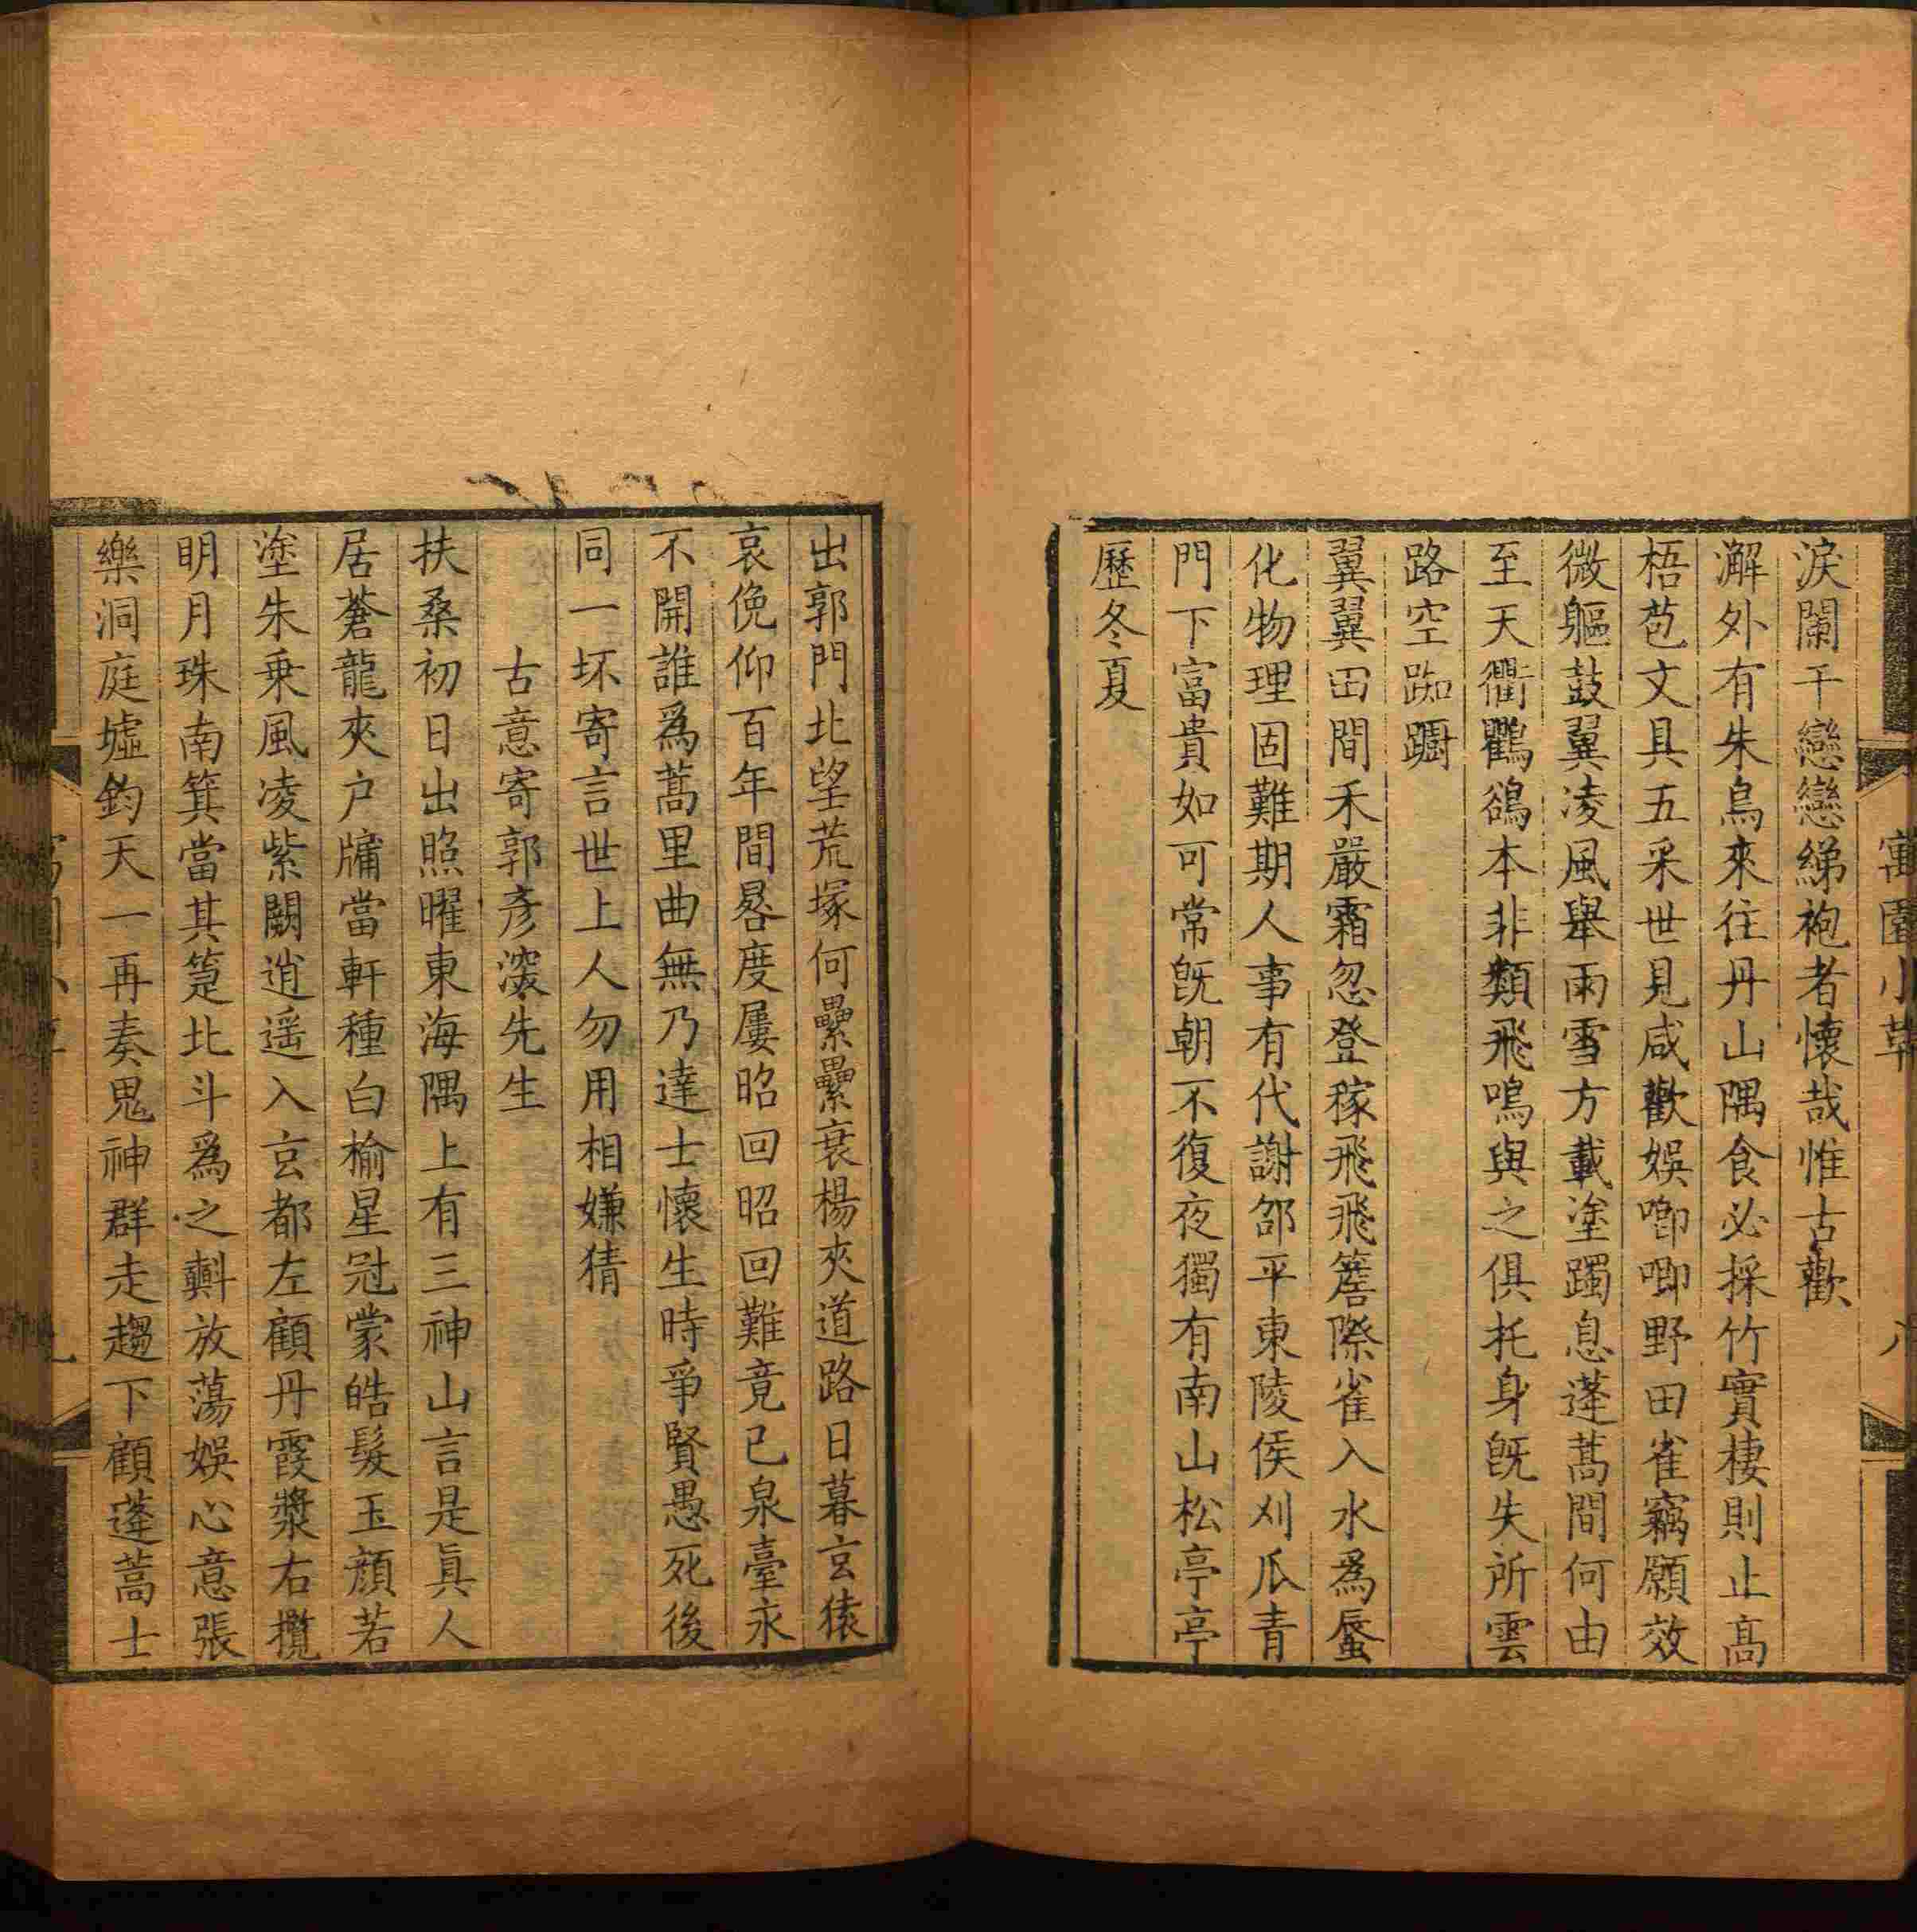 寓園小草
淚闌干戀戀綈袍者懷哉惟古歡
澥外有朱鳥來往丹山隅食必採竹實棲則止高
梧苞文具五采世見咸歡娛唧唧野田雀竊願效
微軀鼓翼凌風舉雨雪方載塗躅息蓬蒿間何由
至天衢鸛鵒本非類飛鳴與之俱托身旣失所雲
路空踟躕
翼翼田間禾嚴霜忽登稼飛飛簷際雀入水爲蜃
化物理固難期人事有代謝邵平東陵侯刈瓜青
門下富貴如可常旣朝不復夜獨有南山松亭亭
歷冬夏
出郭門北望荒塚何纍纍衰楊夾道路日暮玄猿
哀俛仰百年間晷度屢昭回昭回難竟已泉臺永
不開誰爲蒿里曲無乃達士懷生時爭賢愚死後
同一坏寄言世上人勿用相嫌猜
古意寄郭彥深先生
扶桑初日出照曜東海隅上有三神山言是眞人
居蒼龍夾户牖當軒種白榆星冠蒙皓髮玉顔若
塗朱乗風凌紫闕逍遥入玄都左顧丹霞漿右攬
明月珠南箕當其筵北斗爲之㪺放蕩娛心意張
樂洞庭墟鈞天一再奏鬼神群走趨下顧蓬蒿士